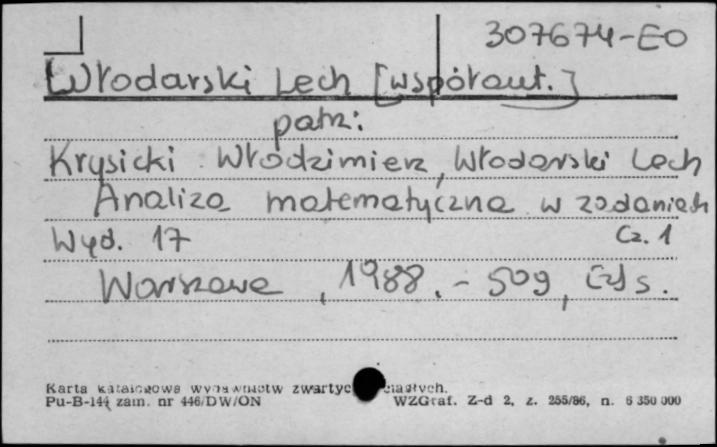 307674-EO
Włodarski Lech [współaut.]
patrz:
Krysicki Włodzimierz, Włodarski Lech
Analiza matematyczna w zadaniach
Wyd. 17 Cz. 1
Warszawa, 1988. - 509, [2] s.
Karta katalogowa wydawnictw zwartych ciągłych.
Pu-B-144 zam. nr 446/DW/ON WZGraf. Z-d 2, z. 255/86, n. 6 350 000